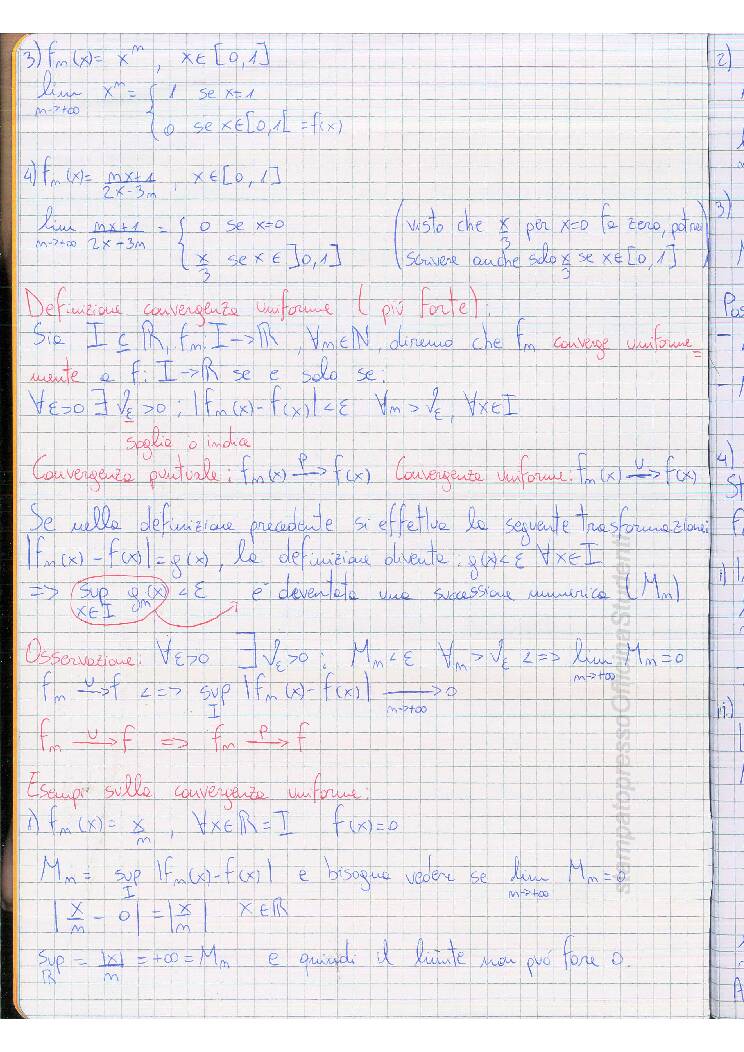 3) fn(x) = x^n , x∈[0,1]
lim n→+∞ x^n = { 1 se x=1
0 se x∈[0,1[ = f(x)
4) fn(x) = (nx+1)/(2x-3n) , x∈[0,1]
lim n→+∞ (nx+1)/(2x-3n) = { 0 se x=0
x/3 se x∈]0,1]
(visto che x/3 per x=0 fa zero, potrei
scrivere anche solo x/3 se x∈[0,1])
Definizione convergenza uniforme (più forte):
Sia I ⊆ ℝ, fn: I→ℝ, ∀n∈ℕ, diremo che fn converge uniforme=
mente a f: I→ℝ se e solo se:
∀ε>0 ∃ νε>0 ; |fn(x)-f(x)|<ε ∀n>νε, ∀x∈I
soglia o indice
Convergenza puntuale: fn(x) —P→ f(x) Convergenza uniforme: fn(x) —U→ f(x)
Se nella definizione precedente si effettua la seguente trasformazione:
|fn(x)-f(x)| = g(x), la definizione diventa: g(x)<ε ∀x∈I
=> sup x∈I gn(x) <ε è diventata una successione numerica (Mn)
Osservazione: ∀ε>0 ∃ νε>0 : Mn<ε ∀n>νε <=> lim n→+∞ Mn=0
fn —U→ f <=> sup I |fn(x)-f(x)| —n→+∞→ 0
fn —U→ f => fn —P→ f
Esempi sulla convergenza uniforme:
1) fn(x) = x/n , ∀x∈ℝ=I f(x)=0
Mn = sup I |fn(x)-f(x)| e bisogna vedere se lim n→+∞ Mn=0
|x/n - 0| = |x/n| x∈ℝ
sup ℝ = |x|/n = +∞ = Mn e quindi il limite non può fare 0.
stampatopressoOfficinaStudenti
2)
3)
Pos
4)
St
i)
iii)